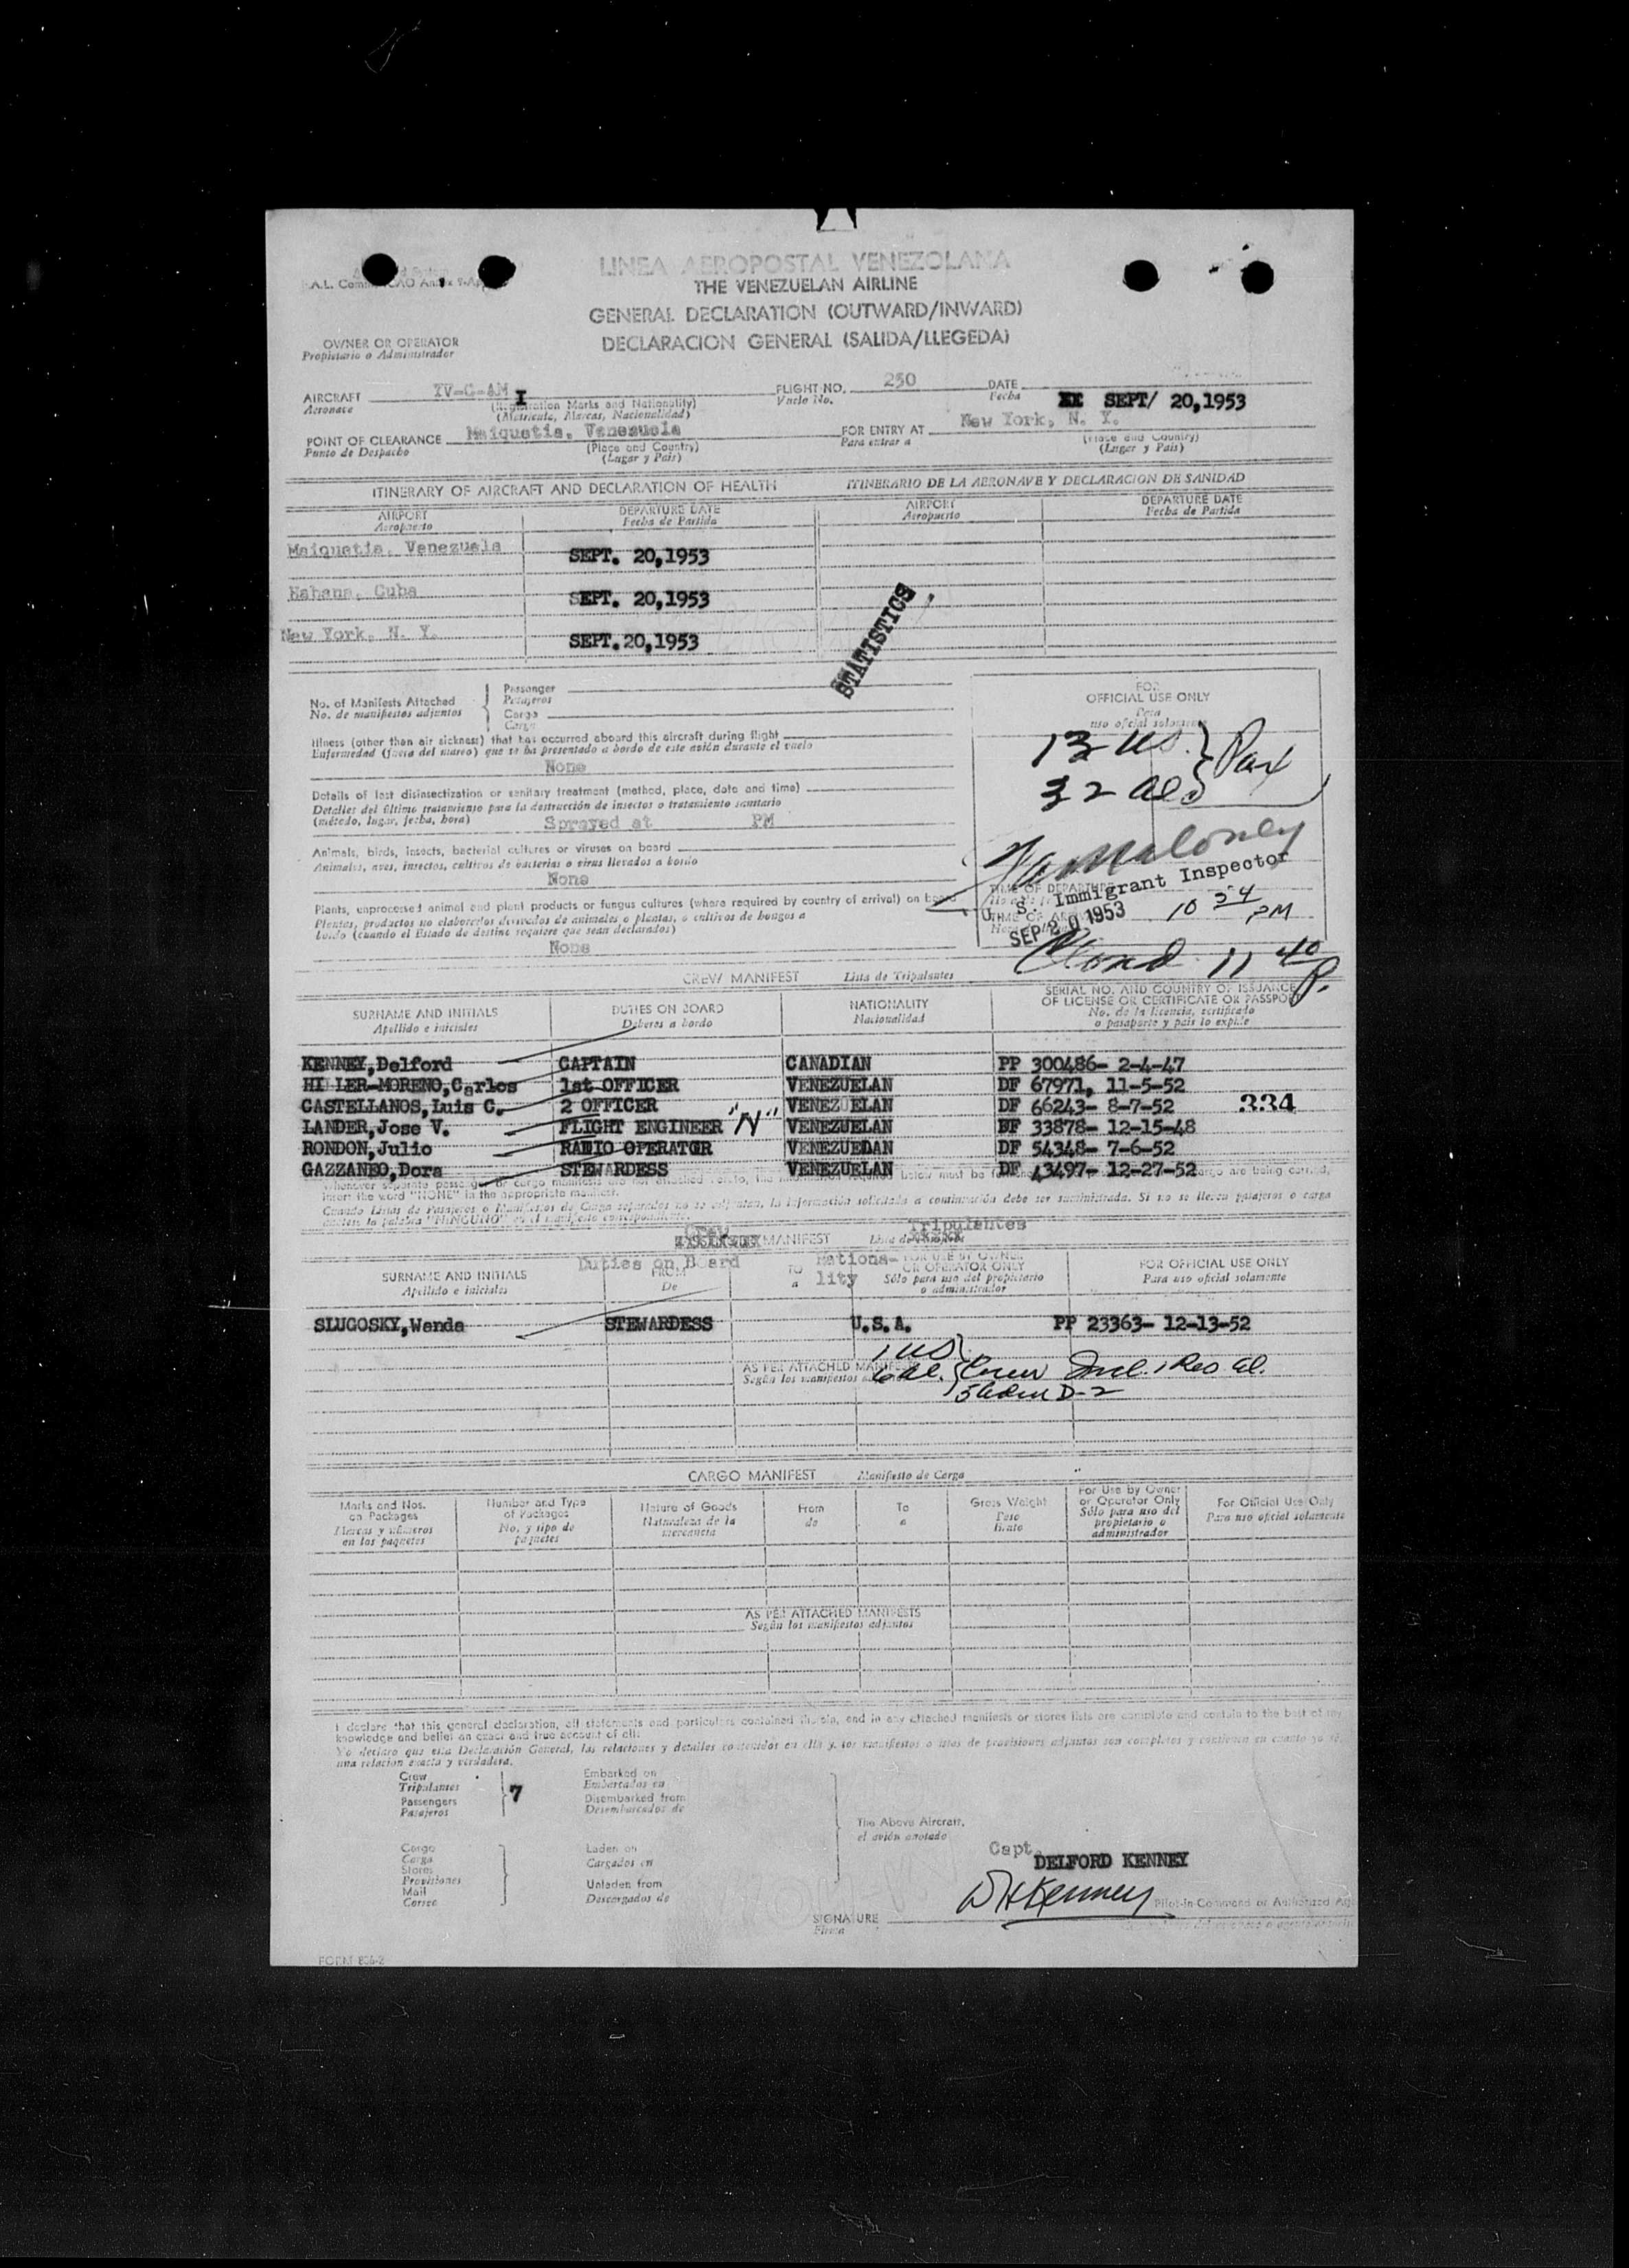 LINEA AEROPOSTAL VENEZOLANA
THE VENEZUELAN AIRLINE
GENERAL DECLARATION (OUTWARD/INWARD)
DECLARACION GENERAL (SALIDA/LLEGEDA)
OWNER OR OPERATOR
Propietario o Administrador
AIRCRAFT YV-C-AM I FLIGHT NO. 250 DATE SEPT/ 20,1953
Aeronave (Registration Marks and Nationality) Vuelo No. Fecha
(Matricula, Marcas, Nacionalidad)
POINT OF CLEARANCE Maiquetia, Venezuela FOR ENTRY AT New York, N. Y.
Punto de Despacho (Place and Country) Para entrar a (Place and Country)
(Lugar y Pais) (Lugar y Pais)
ITINERARY OF AIRCRAFT AND DECLARATION OF HEALTH ITINERARIO DE LA AERONAVE Y DECLARACION DE SANIDAD
AIRPORT DEPARTURE DATE AIRPORT DEPARTURE DATE
Aeropuerto Fecha de Partida Aeropuerto Fecha de Partida
Maiquetia, Venezuela SEPT. 20,1953
Habana, Cuba SEPT. 20,1953
New York, N. Y. SEPT.20,1953
STATISTICS
No. of Manifests Attached Passenger
No. de manifiestos adjuntos Pasajeros
Cargo
Carga
FOR
OFFICIAL USE ONLY
Para
uso oficial solamente
13 US. } Pax
32 Als
Illness (other than air sickness) that has occurred aboard this aircraft during flight
Enfermedad (fuera del mareo) que se ha presentado a bordo de este avión durante el vuelo
None
Details of last disinsectization or sanitary treatment (method, place, date and time)
Detalles del último tratamiento para la destrucción de insectos o tratamiento sanitario
(método, lugar, fecha, hora) Sprayed at PM
Animals, birds, insects, bacterial cultures or viruses on board
Animales, aves, insectos, cultivos de bacterias o virus llevados a bordo
None
Plants, unprocessed animal and plant products or fungus cultures (where required by country of arrival) on board
Plantas, productos no elaborados derivados de animales o plantas, o cultivos de hongos a
bordo (cuando el Estado de destino requiere que sean declarados)
None
Maloney
TIME OF DEPARTURE
U. S. Immigrant Inspector
SEP 20 1953 10 34 PM
11 40 P.
CREW MANIFEST Lista de Tripulantes
SURNAME AND INITIALS DUTIES ON BOARD NATIONALITY SERIAL NO. AND COUNTRY OF ISSUANCE OF LICENSE OR CERTIFICATE OR PASSPORT
Apellido e iniciales Deberes a bordo Nacionalidad No. de la licencia, certificado o pasaporte y pais lo expide
KENNEY,Delford CAPTAIN CANADIAN PP 300486- 2-4-47
HILLER-MORENO,Carlos 1st OFFICER VENEZUELAN DF 67971, 11-5-52
CASTELLANOS,Luis C. 2 OFFICER VENEZUELAN DF 66243- 8-7-52 334
LANDER,Jose V. FLIGHT ENGINEER "N" VENEZUELAN DF 33878- 12-15-48
RONDON,Julio RADIO OPERATOR VENEZUEDAN DF 54348- 7-6-52
GAZZANEO,Dora STEWARDESS VENEZUELAN DF 43497- 12-27-52
insert the word "NONE" in the appropriate manifest.
Cuando Listas de Pasajeros o Manifiestos de Carga separados no se adjuntan, la información solicitada a continuación debe ser suministrada. Si no se llevan pasajeros o carga
Crew MANIFEST Tripulantes
Duties on Board Nationality
SURNAME AND INITIALS FROM TO FOR USE BY OWNER OR OPERATOR ONLY FOR OFFICIAL USE ONLY
Apellido e iniciales De a Sólo para uso del propietario o administrador Para uso oficial solamente
SLUGOSKY,Wanda STEWARDESS U.S.A. PP 23363- 12-13-52
AS PER ATTACHED MANIFESTS
Según los manifiestos
1 US
6 al. } Crew Incl. 1 Res al.
5 Adm D-2
CARGO MANIFEST Manifiesto de Carga
Marks and Nos. on Packages Number and Type of Packages Nature of Goods From To Gross Weight For Use by Owner or Operator Only For Official Use Only
Marcas y números en los paquetes No. y tipo de paquetes Naturaleza de la mercancia de a Peso Bruto Sólo para uso del propietario o administrador Para uso oficial solamente
AS PER ATTACHED MANIFESTS
Según los manifiestos adjuntos
I declare that this general declaration, all statements and particulars contained therein, and in any attached manifests or stores lists are complete and contain to the best of my
knowledge and belief an exact and true account of all:
Yo declaro que esta Declaración General, las relaciones y detalles contenidos en ella y los manifiestos o listas de provisiones adjuntos son completos y contienen en cuanto yo sé,
una relacion exacta y verdadera.
Crew Embarked on
Tripulantes 7 Embarcados en
Passengers Disembarked from
Pasajeros Desembarcados de
The Above Aircraft,
el avión anotado
Cargo Laden on
Carga Cargados en
Stores
Provisiones Unladen from
Mail Descargados de
Correo
Capt. DELFORD KENNEY
D H Kenney
SIGNATURE Pilot-in-Command or Authorized
Firma
FORM